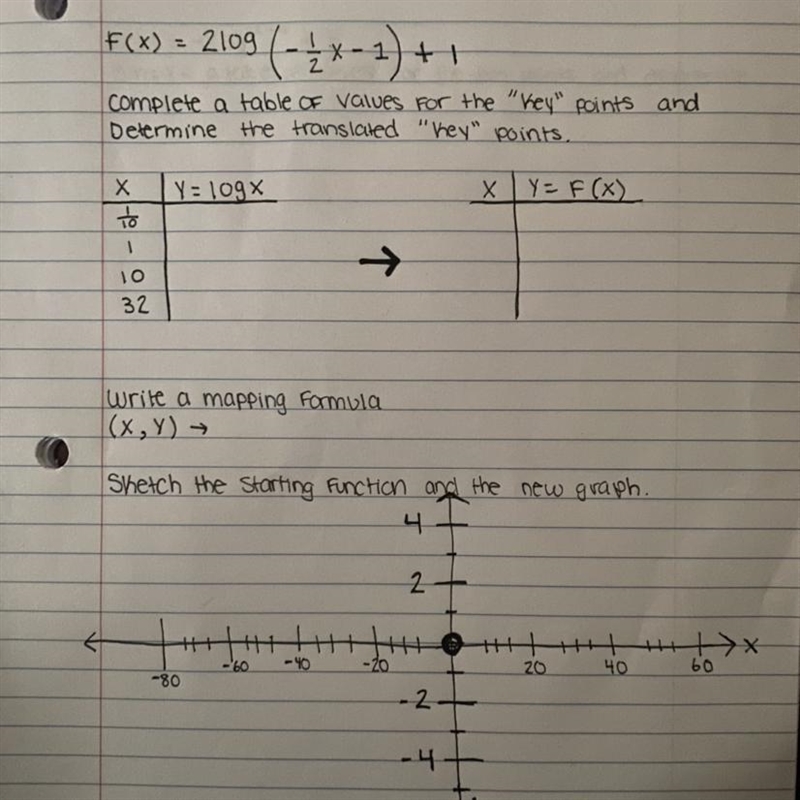 F(x) = 2log (-1/2 x - 1) + 1
Complete a table of values for the "key" points and
Determine the translated "key" points.
X | Y = log x    X | Y = F(x)
1/10
1
10
32
→
Write a mapping formula
(X, Y) →
Sketch the starting function and the new graph.
4
2
-80 -60 -40 -20 20 40 60 X
-2
-4